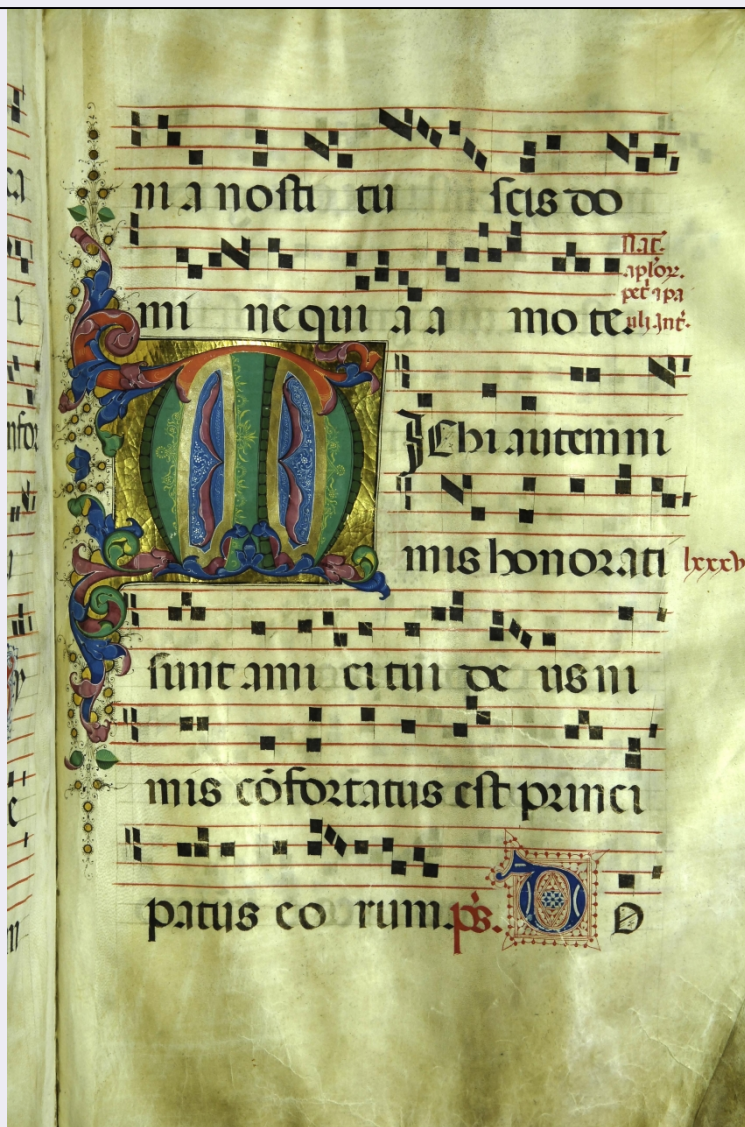 m a nosti tu scis do
mi ne qui a a mo te.
M Ichi autem ni
mis honorati lxxxv
sunt ami ci tui de us ni
mis cōfortatus est princi
patus co rum. ps. D O